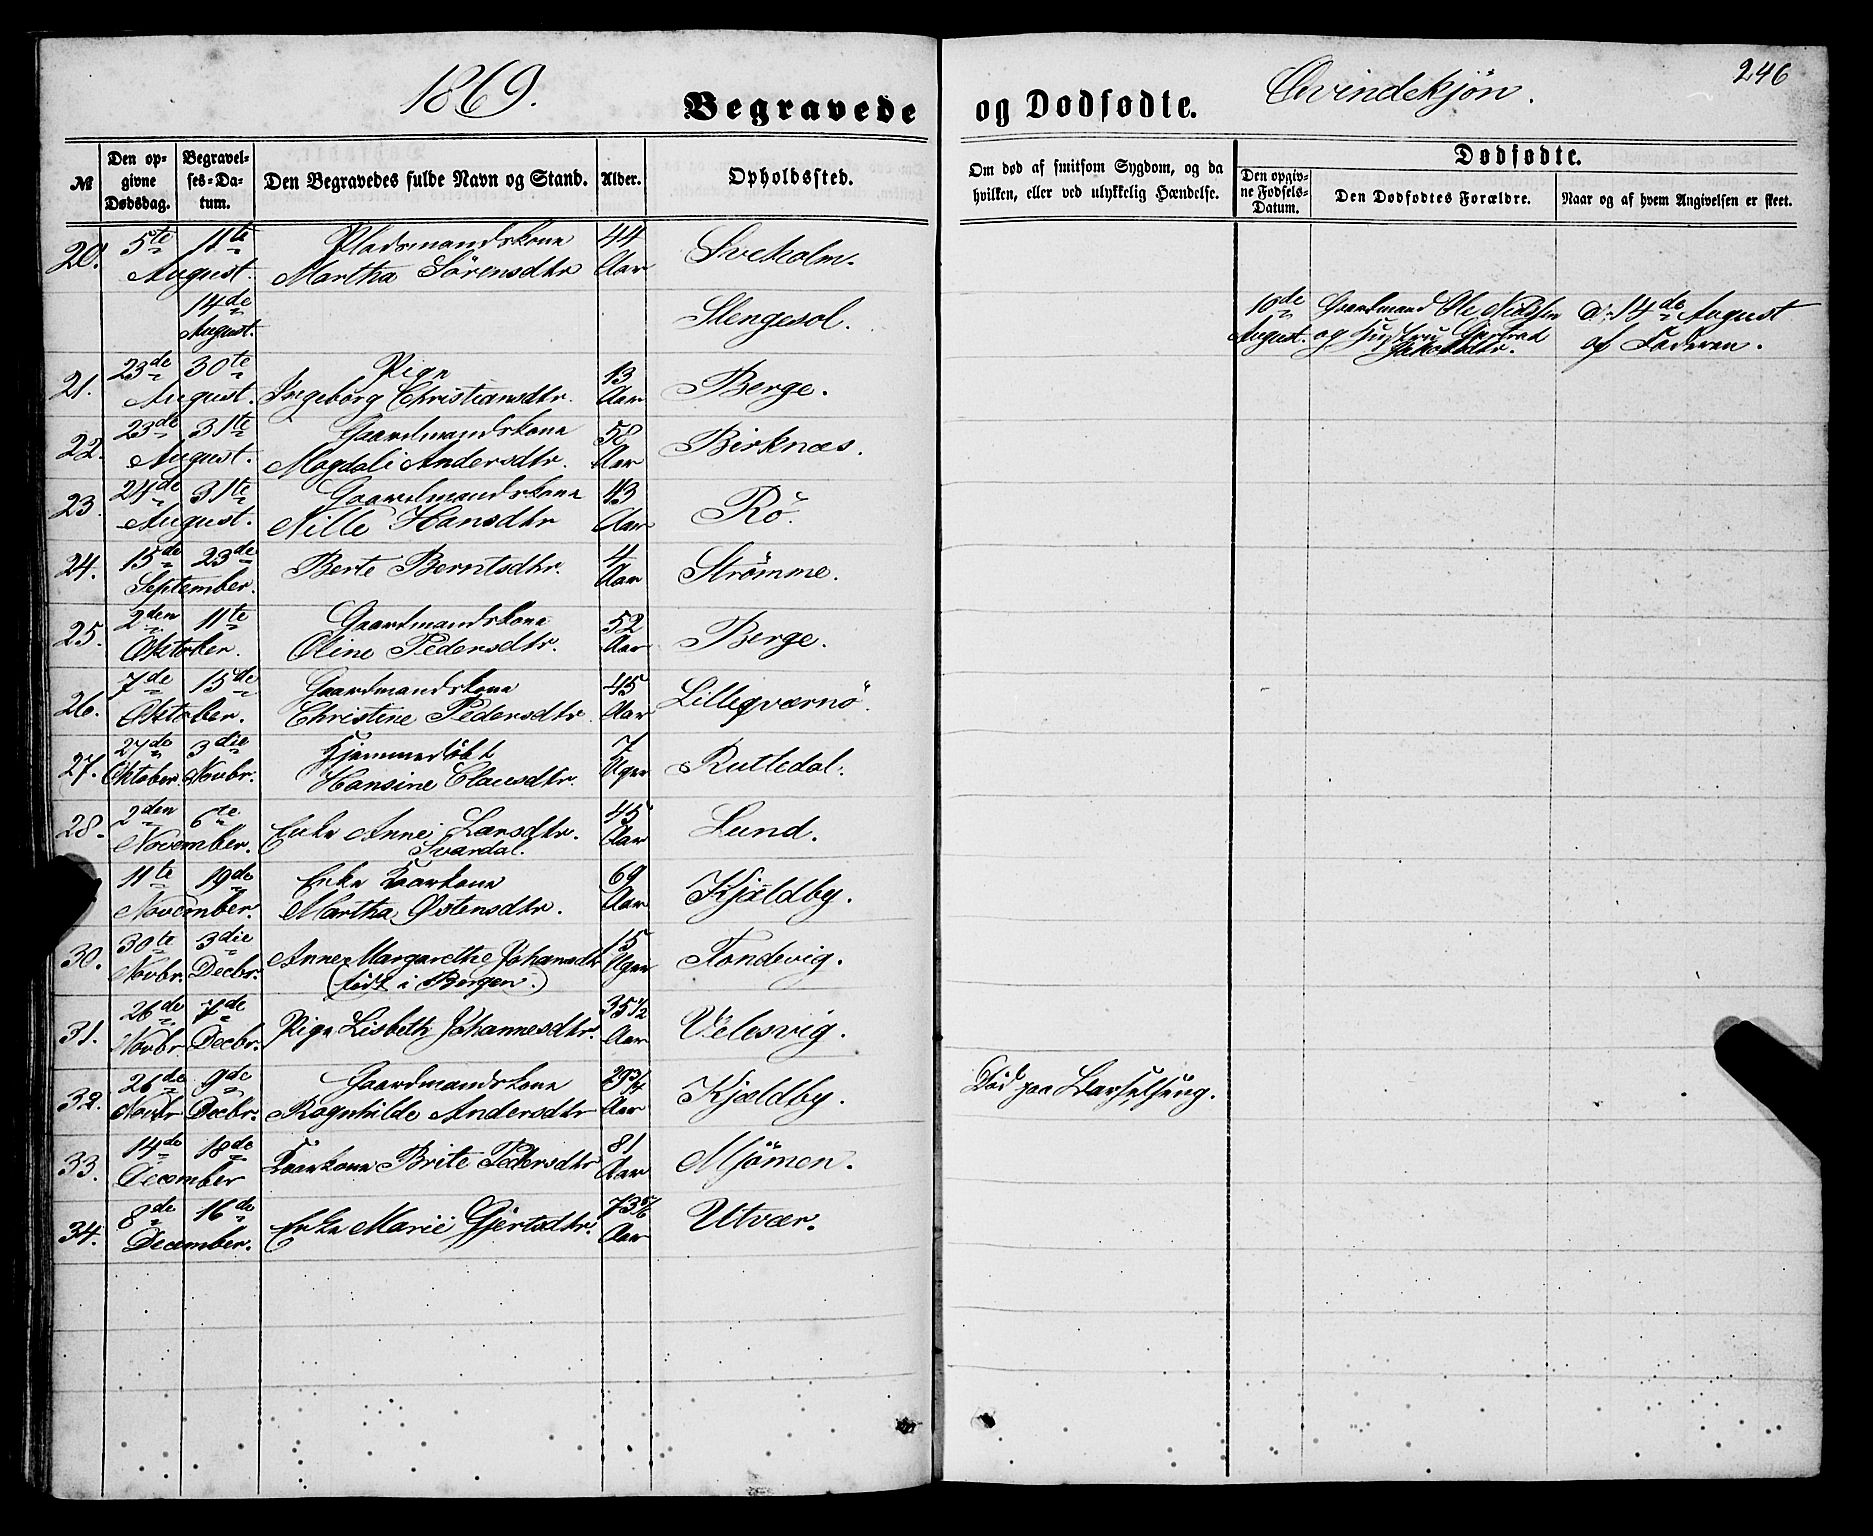 1869.
Begravede
og Dødfødte.
Qvindekjön.
246
№
Den opgivne Dødsdag.
Begravelses-Datum.
Den Begravedes fulde Navn og Stand.
Alder.
Opholdssted.
Om død af smitsom Sygdom, og da hvilken, eller ved ulykkelig Hændelse.
Dødfødte.
Den opgivne Fødsels-Datum.
Den Dødfødtes Forældre.
Naar og af hvem Angivelsen er skeet.
20. 5te 11te Pladsmandskone 44
August. Martha Sörensdtr Aar Sveholm.
14de August. Stengesol. 10de August. Gaardmand Ole Nielsen og Hustru Gjertrud Jakobsdtr. d: 14de August af Faderen.
21. 23de 30te Pige 13
August. Ingeborg Christiansdtr. Aar Berge.
22. 23de 31te Gaardmandskone 58
August. Magdali Andersdtr. Aar Birknæs.
23. 24de 31te Gaardmandskone 43
August. Nille Hansdtr Aar Rö.
24. 15de 23de Berte Berntsdtr. 4
September. Aar Strömme.
25. 2den 11te Gaardmandskone 52
Oktober. Oline Pedersdtr. Aar Berge.
26. 7de 15de Gaardmandskone 45
Oktober. Christine Pedersdtr. Aar Lilleqværnö.
27. 27de 3die Hjemmedöbt 7
Oktober. Novbr. Hansine Clausdtr. Uger Rutledal.
28. 2den 6te Enke Anne Larsdtr. 45
November. Svardal. Aar Lund.
11te 19de Enke Kaarkone 69
November. Martha Östensdtr. Aar Kjældby.
30. 30te 3die Anne Margarethe Johannsdtr 15
Novbr. Decbr. (född i Bergen.) Uger Tondevig.
31. 26de 7de Pige Lisbeth Johannesdtr. 35 1/2
Novbr Decbr. Aar Velesvig.
32. 26de 9de Gaardmandskone 29 3/4
Novbr Decbr. Ragnhilde Andersdtr Aar Kjældby. Död paa Barselseng.
33. 14de 18de Kaarkone Brite Pedersdtr 81
December Aar Mjömen.
34. 8de 16de Enke Marie Gjertsdtr. 73 5/6
December. Aar Utvær.